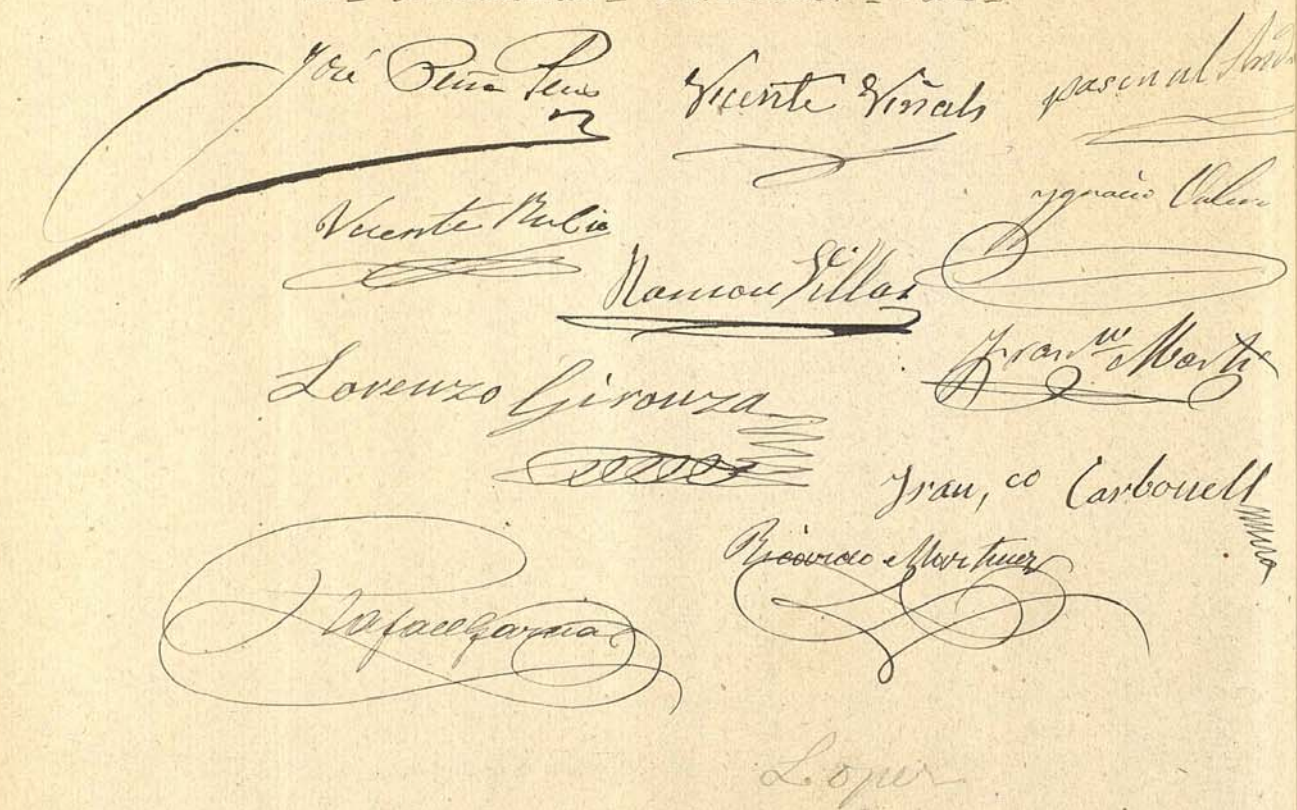 José Peña
Vicente Viñals
pascual
Vicente Rubio
ygnacio Valero
Ramon Villar
Lorenzo Gironza
Fran.co Marti
Fran,co Carbonell
Ricardo Martinez
Rafael Garcia
Lopez